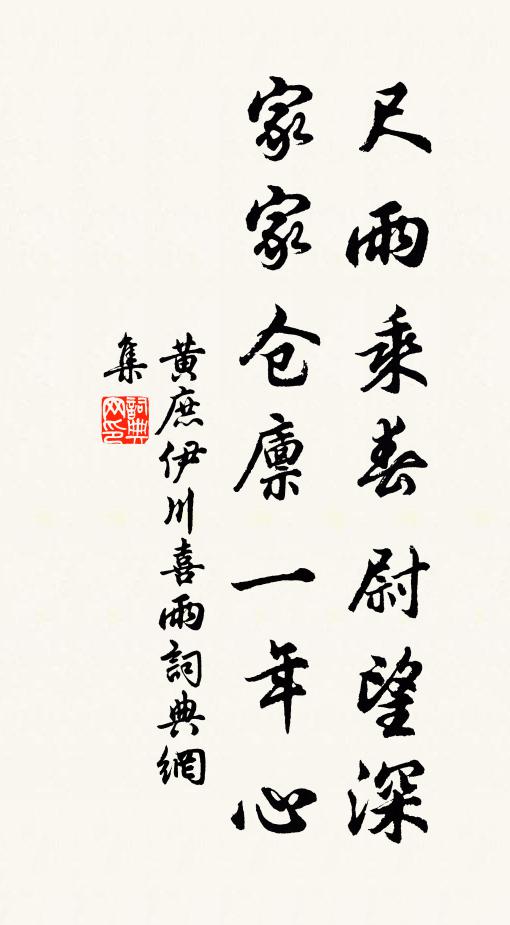 尺雨乘春尉望深
家家仓廪一年心
黄庶伊川喜雨詞典網
集
詞典
网印